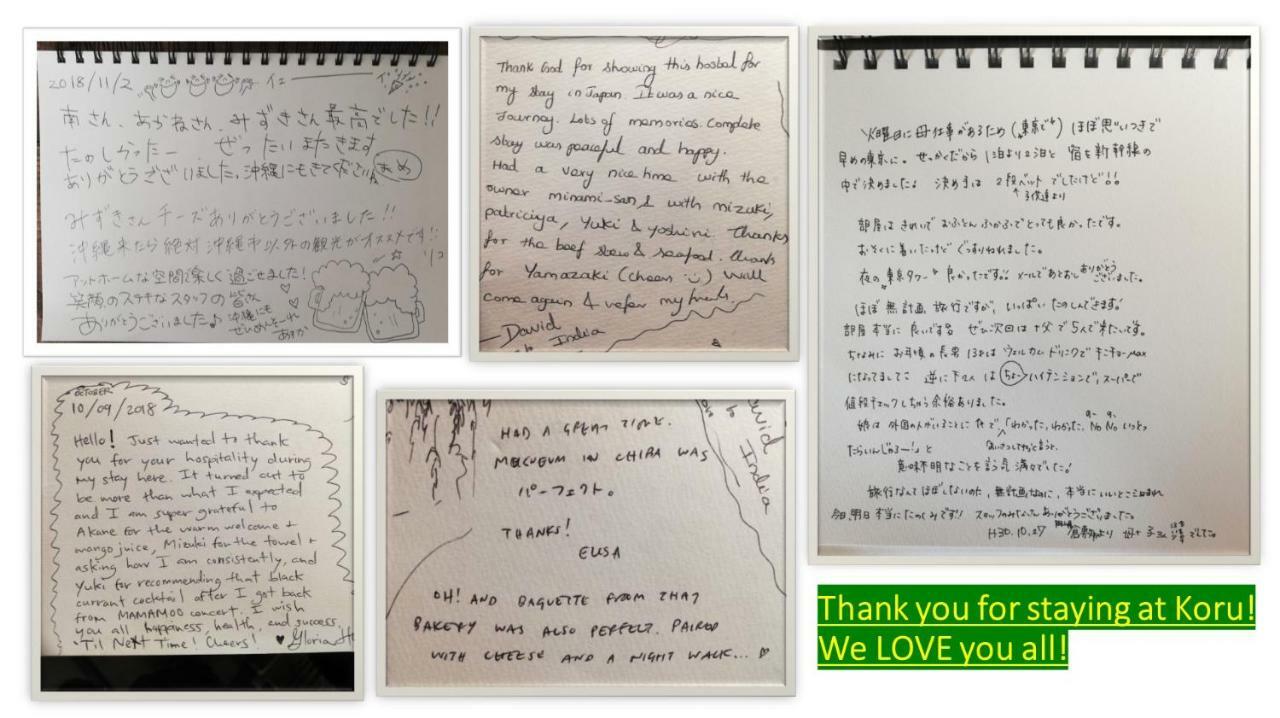 2018/11/2
南さん、あかねさん、みずきさん最高でした!!
たのしかったー ぜったいまたきます
ありがとうございました。沖縄にもきてください
みずきさんチーズありがとうございました!!
沖縄来たら絶対沖縄市以外の観光がオススメです!!
アットホームな空間で楽しく過ごせました!
笑顔のステキなスタッフの皆さん
ありがとうございました♪
沖縄にも
ぜひめんそーれ
あすか
Thank God for showing this hostel for
my stay in Japan. It was a nice
Journey. Lots of memories. Complete
stay was peaceful and happy.
Had a very nice time with the
owner minami-san & with mizuki,
patriciya, Yuki & Yoshini. Thanks
for the beef stew & seafood. Thanks
for Yamazaki (cheers :) ) Will
come again & refer my friends.
David
India
火曜日に母仕事があるため(東京で) ほぼ思いつきで
早めの東京に。せっかくだから1泊より2泊と 宿を新幹線の
中で決めました。決め手は 2段ベット でしたけど!!
子供達より
部屋はきれいで おふとんふかふかでとっても良かったです。
おそくに着いたけど ぐっすりねれました。
夜の東京タワー 良かったです!! メールで ありがとう
ございました。
ほぼ無計画 旅行ですが、いっぱい たのしんできます!
部屋本当に 良いです ぜひ次回は +父で5人で来たいです。
ちなみに お年頃の長男 13才は ウェルカムドリンクで キンチョーMAX
になってまして 逆に下2人は ちょー ハイテンションで、スーパーで
値段チェックしちゃう余裕ありました。
娘は 外国の人がいることに 「わかった、わかった、No No いっとっ
たらいいんじゃろー!」と
意味不明なことを言う気 満々でした!
旅行なんてほぼしないのに、無計画なのに、本当にいいとこ
今日、明日 本当にたのしみです! スタッフのみなさん ありがとうございました。
H30.10.27
OCTOBER
10/09/2018
Hello! Just wanted to thank
you for your hospitality during
my stay here. It turned out to
be more than what I expected
and I am super grateful to
Akane for the warm welcome +
mango juice, Mizuki for the towel +
asking how I am consistently, and
Yuki for recommending that black
currant cocktail after I got back
from MAMAMOO concert. I wish
you all happiness, health, and success.
'Til Next Time! Cheers! ♥ Gloria
HAD A GREAT TIME.
MUSEUM IN CHIBA WAS
パーフェクト。
THANKS!
ELISA
OH! AND BAGUETTE FROM THAT
BAKERY WAS ALSO PERFECT. PAIRED
WITH CHEESE AND A NIGHT WALK... ♡
David
India
Thank you for staying at Koru!
We LOVE you all!